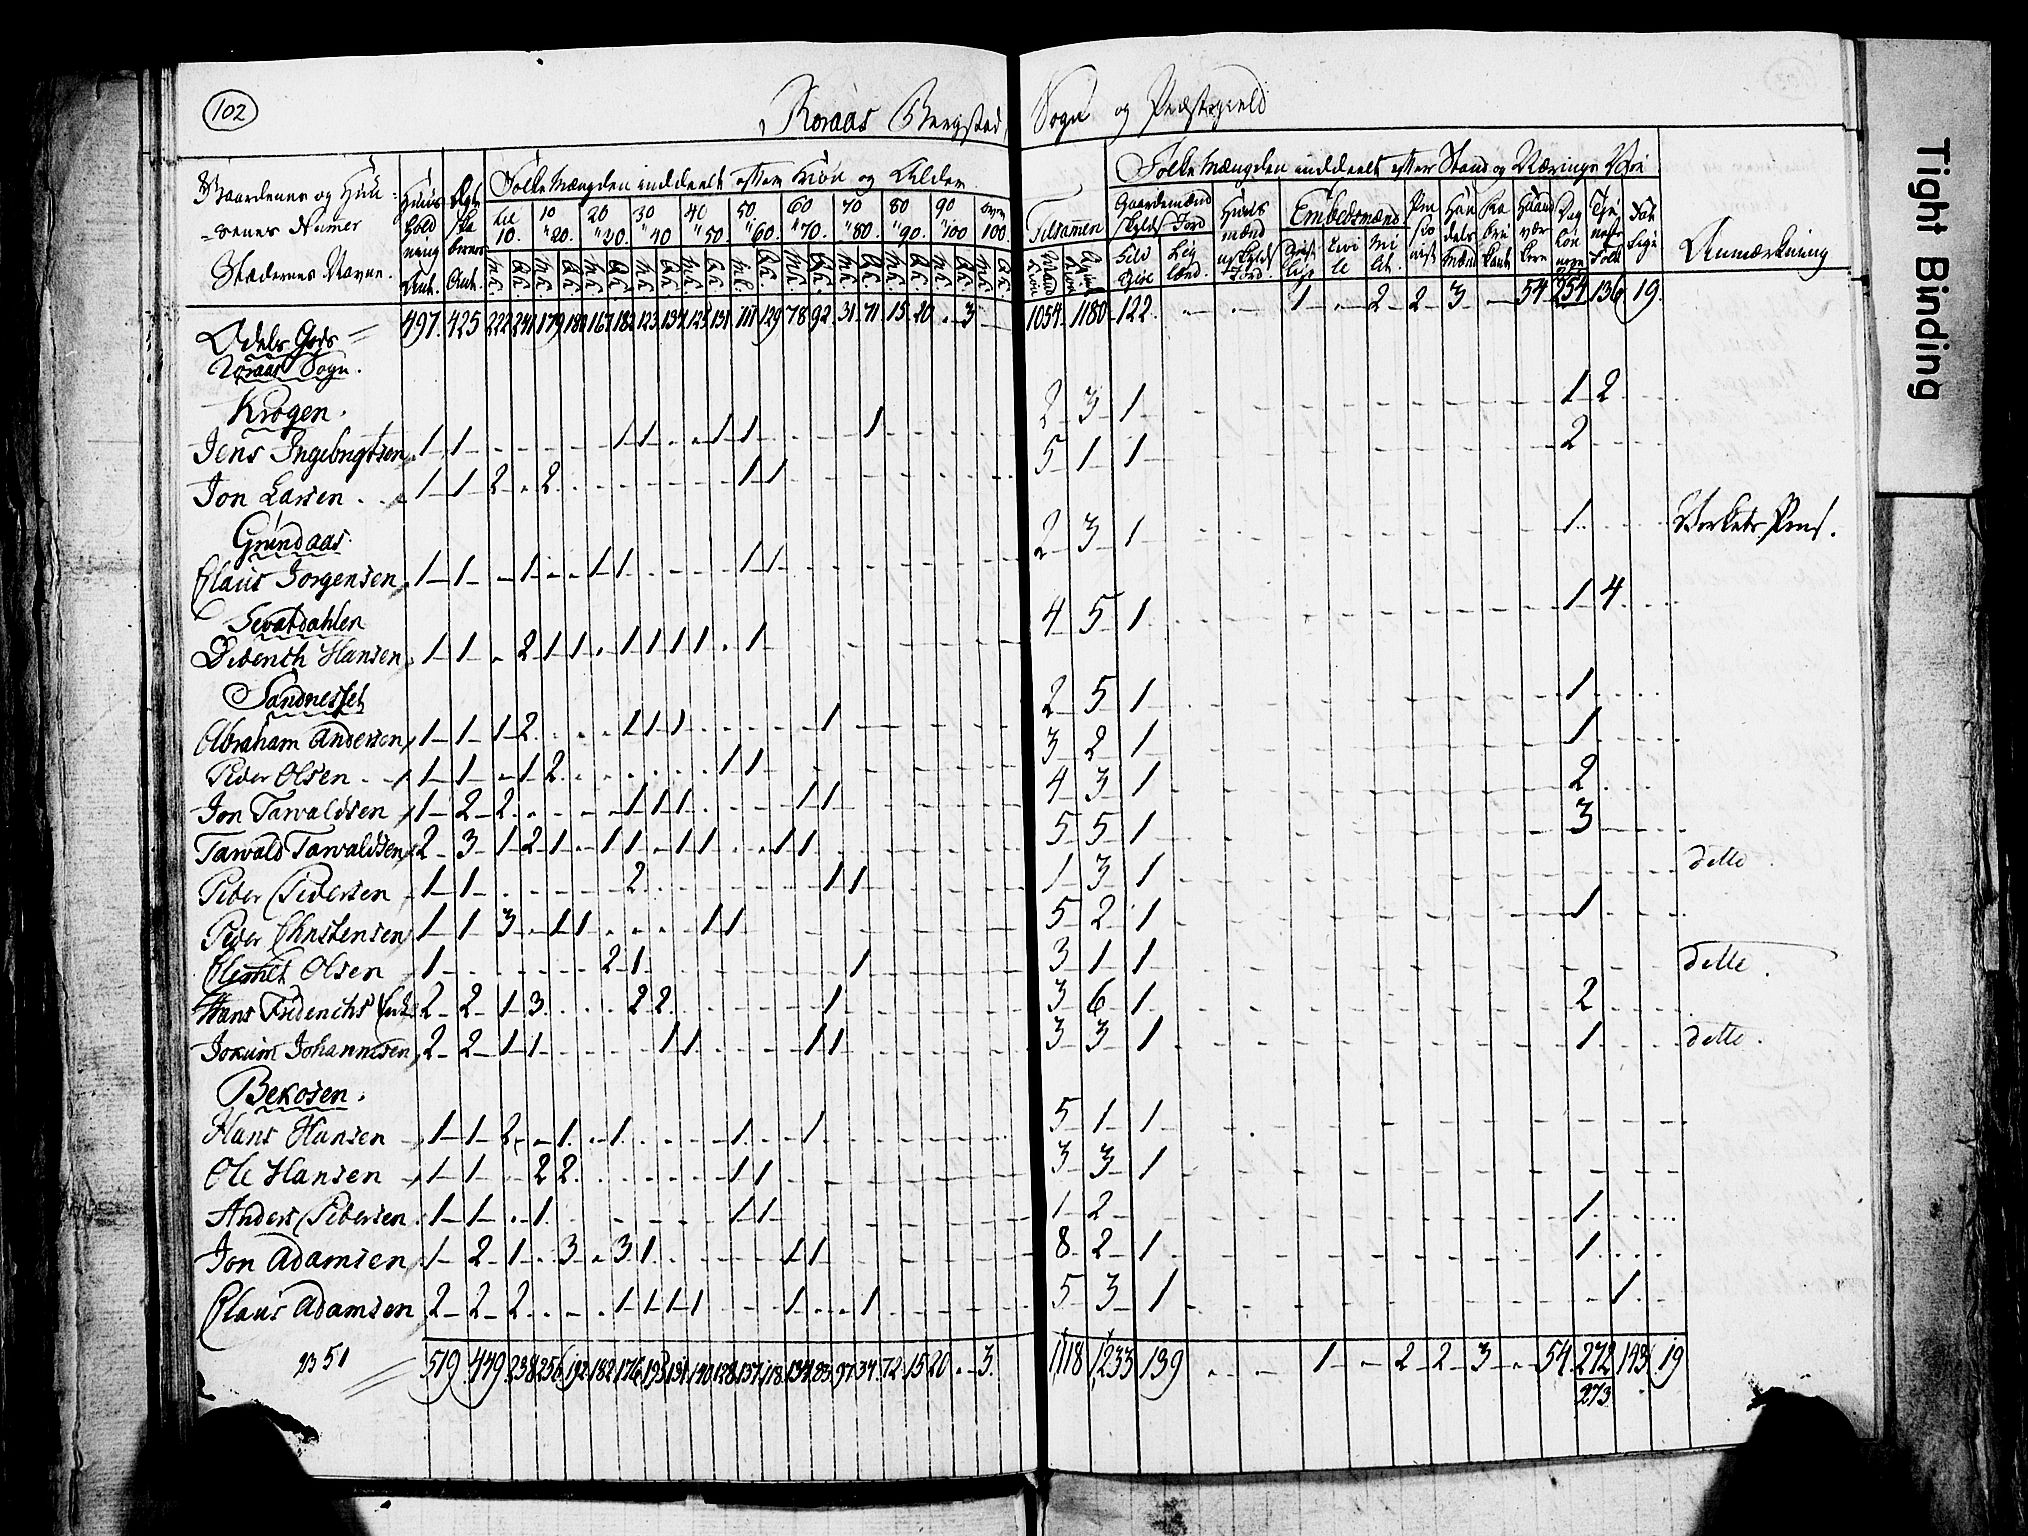 102
Roraas Bergstad Sogn og Præstegield
Tight Binding
Gaardenes og Huu-
senes Numer
Stædernes Navne.
Huus
hold
ning
Ant.
Ægte
ska
berns
Ant.
Folke Mængden inddeelt efter Kiøn og Alder
til 10. 10 " 20. 20 " 30. 30 " 40 40 " 50 50 " 60. 60 " 70. 70 " 80. 80 " 90. 90 " 100 over 100.
Tilsamen
Folke Mængden inddeelt efter Stand og Nærings Vei
Embedsmænd
Anmærkning
497. 425 222 241 179 180 167 182 123 134 125 131 111 129 78 92 31 71 15 20 . 3 — 1054 1180 122 . — . — 1 — . — 2 — 2 — 3 — — 54 254 136 19.
Odels Gods
Roraas Sogn.
Krogen.
Jens Ingebrigtsen 1 1 1 1 1 1 1 2 3 1 1 2
Jon Larsen 1 1 2 2 1 1 5 1 1 2
Grindaas
Claus Jorgensen 1 1 1 1 1 1 1 2 3 1 1 Verkets Pens.
Sevatdahlen
Diderich Hansen 1 1 2 1 1 1 1 1 1 1 4 5 1 1 4
Sandnesset
Abraham Andersen 1 1 1 2 1 1 1 1 2 5 1 1
Peder Olsen 1 1 1 2 1 1 3 2 1 1
Jon Tarvaldsen 1 2 2 1 1 1 1 1 4 3 1 2
Tarvald Tarvaldsen 2 3 1 2 1 1 1 1 1 1 1 5 5 1 3
Peder Pedersen 1 1 2 1 1 1 3 1 dette.
Peder Christensen 1 1 3 1 1 1 1 5 2 1 1
Clemet Olsen 1 2 1 1 3 1 1 dette.
Hans Friderichs 2 2 1 3 2 2 1 3 6 1 2
Jokum Johannesen 2 2 1 1 1 1 1 1 3 3 1 1 dette.
Bekosen.
Hans Hansen 1 1 2 1 1 1 1 5 1 1
Ole Hansen 1 1 2 2 1 1 3 3 1
Anders Pedersen 1 1 1 1 1 1 2 1
Jon Adamsen 1 2 1 3 3 1 1 1 8 2 1 1
Claus Adamsen 2 2 2 1 1 1 1 1 1 5 3 1 1
519. 449 238 256 192 182 176 193 131 140 128 137 118 134 83 97 34 72 15 20 . 3. 1118 1233 139 1 2 2 3 54 272 143 19
273